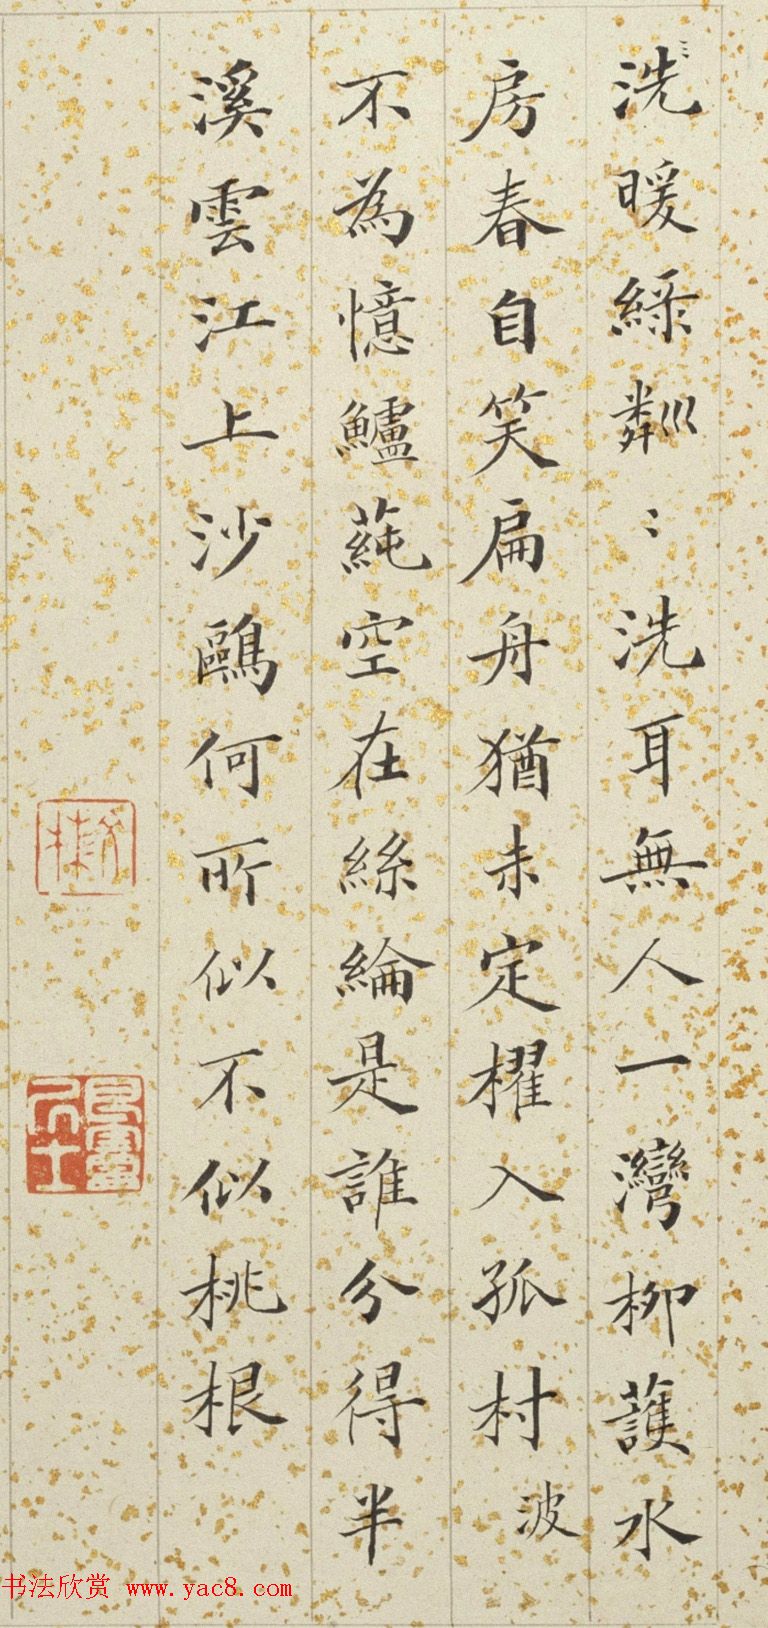 洗暖綠粼〻洗耳無人一灣柳護水
房春自笑扁舟猶未定櫂入孤村波
不為憶鱸蒓空在絲綸是誰分得半
溪雲江上沙鷗何所似不似桃根
书法欣赏 www.yac8.com